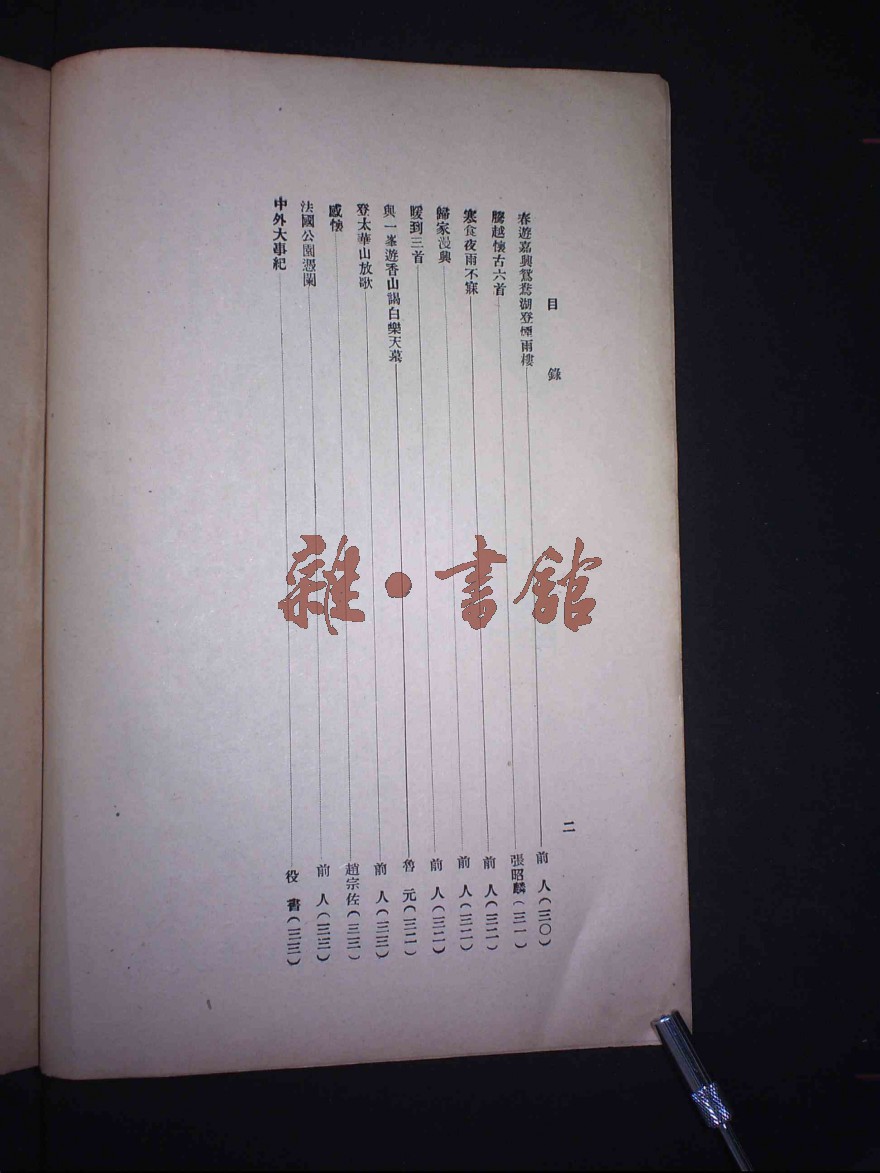 目錄
二
春遊嘉興鴛鴦湖登煙雨樓 前人(三〇)
騰越懷古六首 張昭麟(三一)
寒食夜雨不寐 前人(三二)
歸家漫興 前人(三二)
暖到三首 前人(三二)
與一峯遊香山謁白樂天墓 魯元(三二)
登太華山放歌 前人(三三)
感懷 趙宗佐(三三)
法國公園憑闌 前人(三三)
中外大事紀 役書(三三)
雜·書館